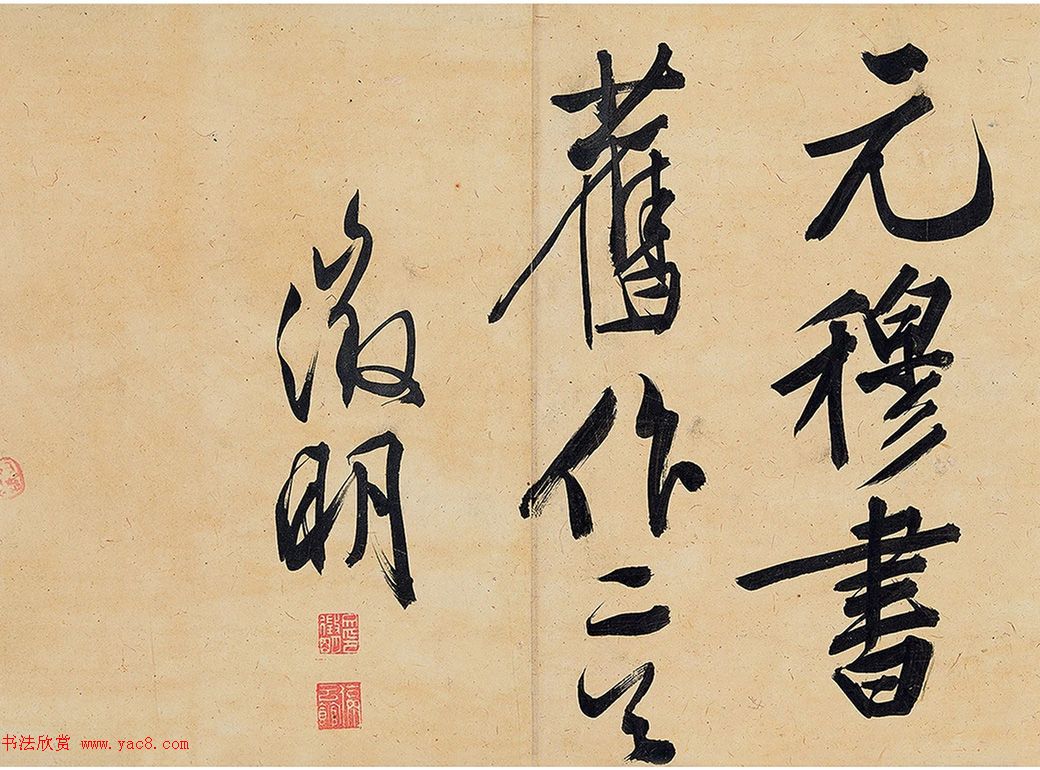 元穆書
舊作二首
徵明
书法欣赏 www.yac8.com